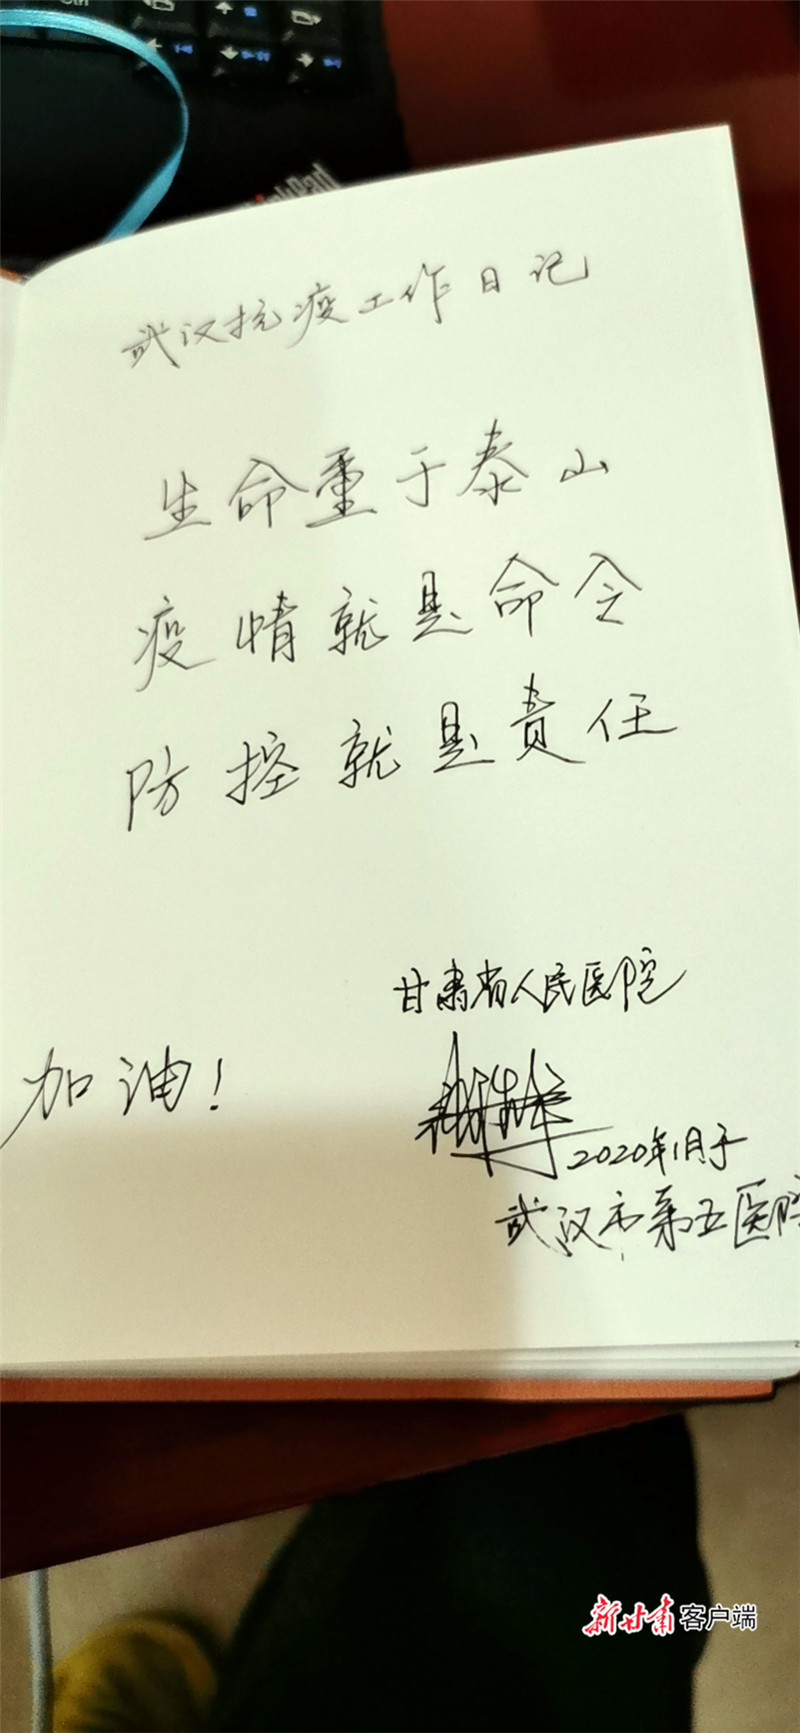 武汉抗疫工作日记
生命重于泰山
疫情就是命令
防控就是责任
甘肃省人民医院
加油!
2020年1月于
武汉市第五医院
新甘肃客户端